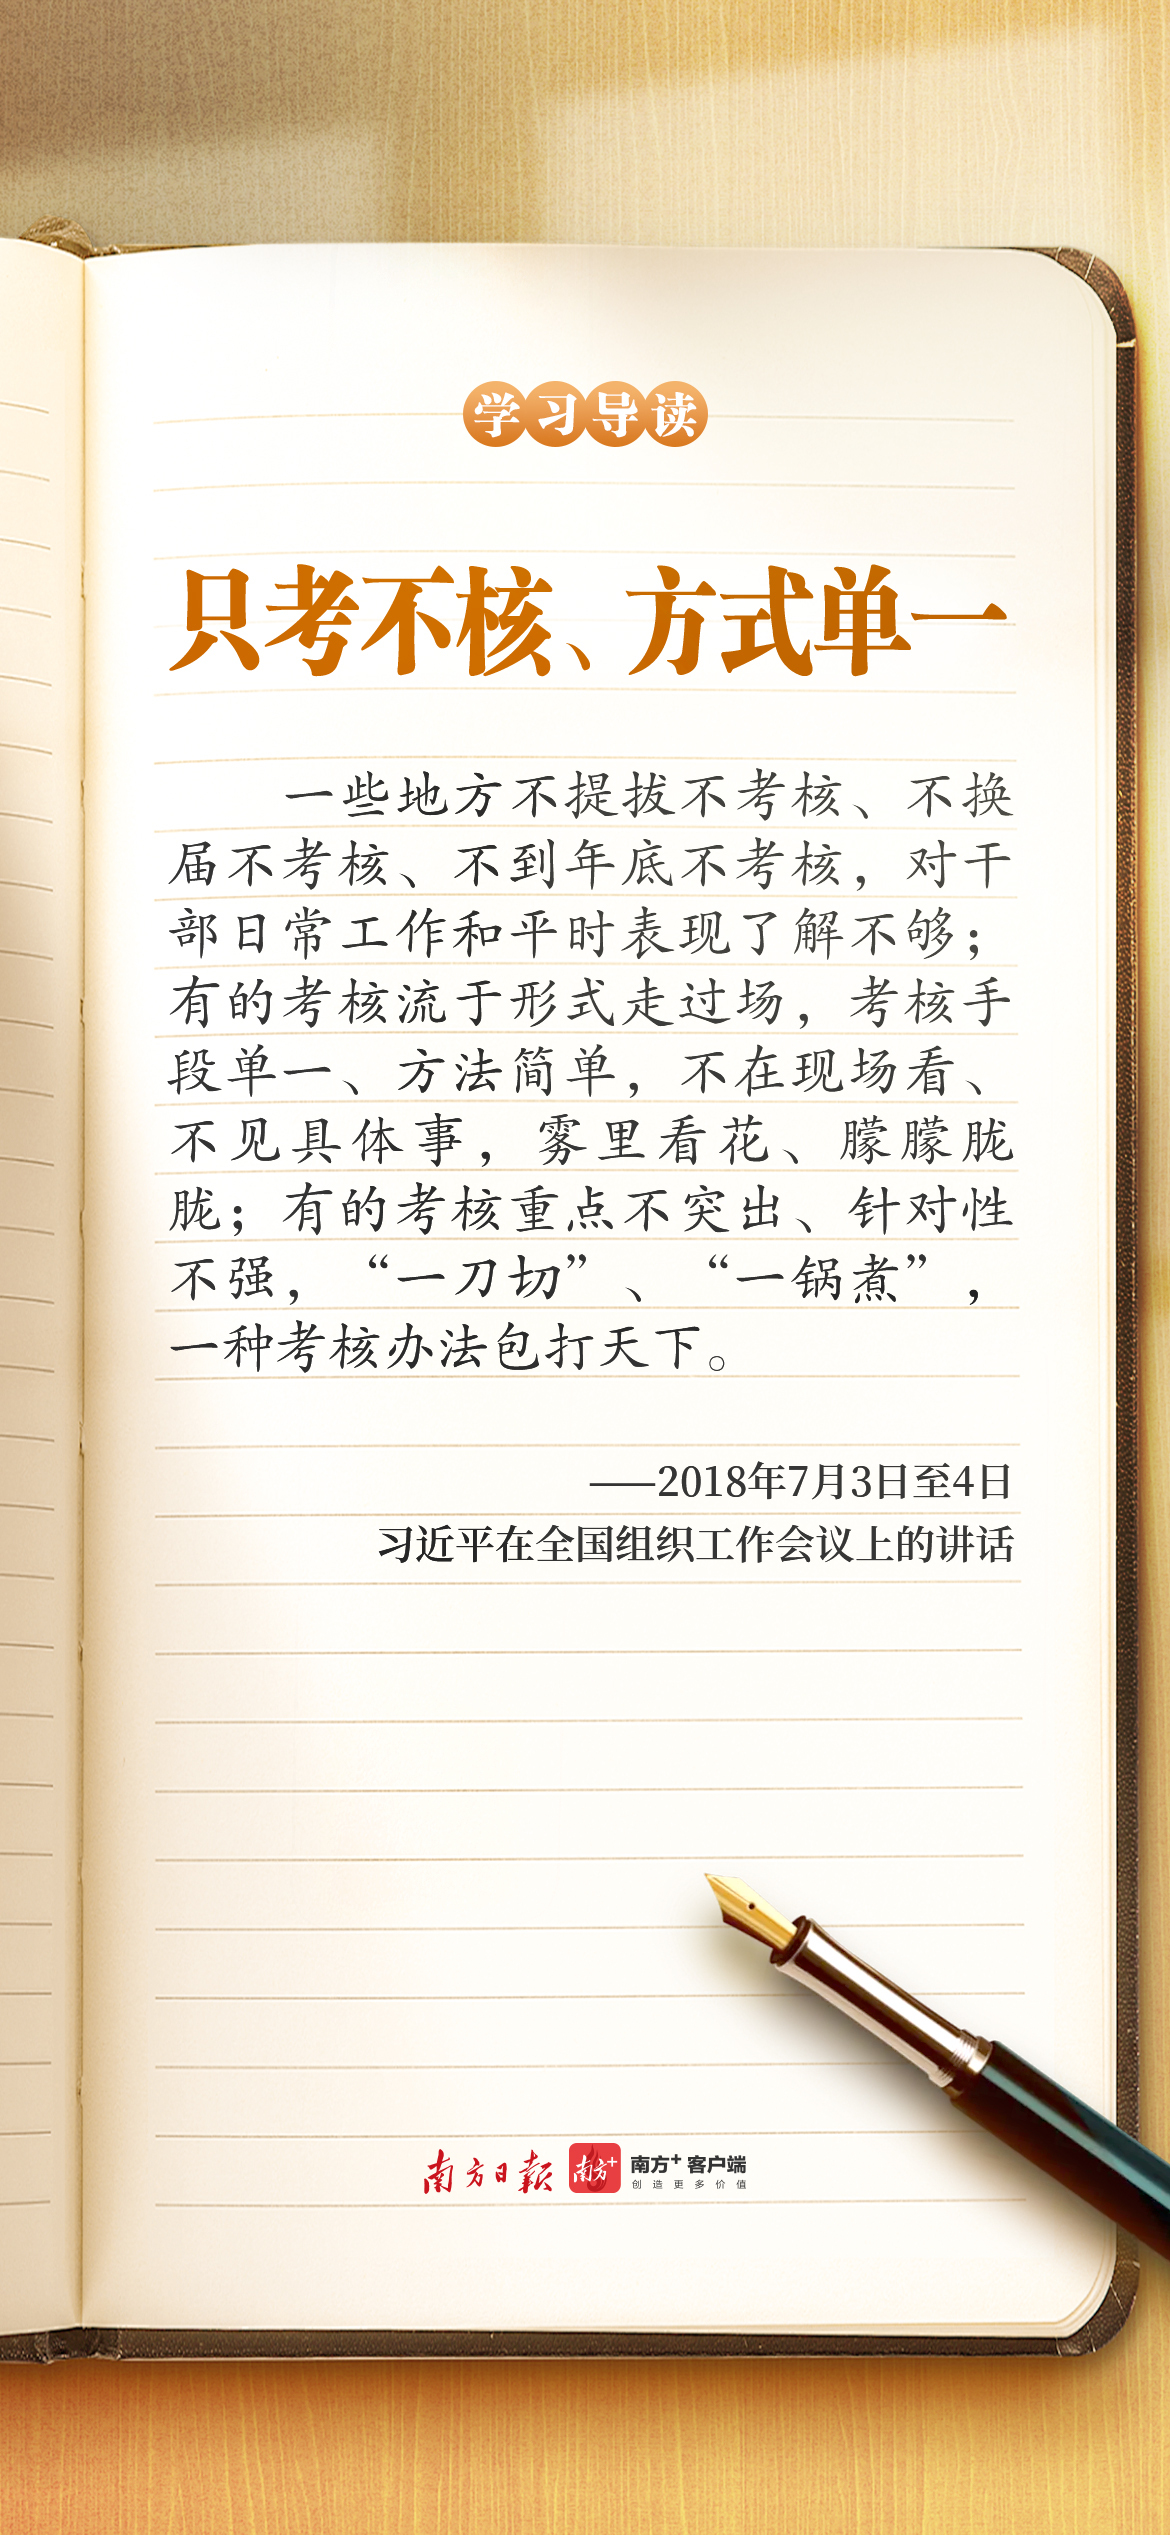 学习导读
只考不核、方式单一
一些地方不提拔不考核、不换
届不考核、不到年底不考核，对干
部日常工作和平时表现了解不够；
有的考核流于形式走过场，考核手
段单一、方法简单，不在现场看、
不见具体事，雾里看花、朦朦胧
胧；有的考核重点不突出、针对性
不强，“一刀切”、“一锅煮”，
一种考核办法包打天下。
——2018年7月3日至4日
习近平在全国组织工作会议上的讲话
南方日报 南方+ 南方+客户端
创造更多价值